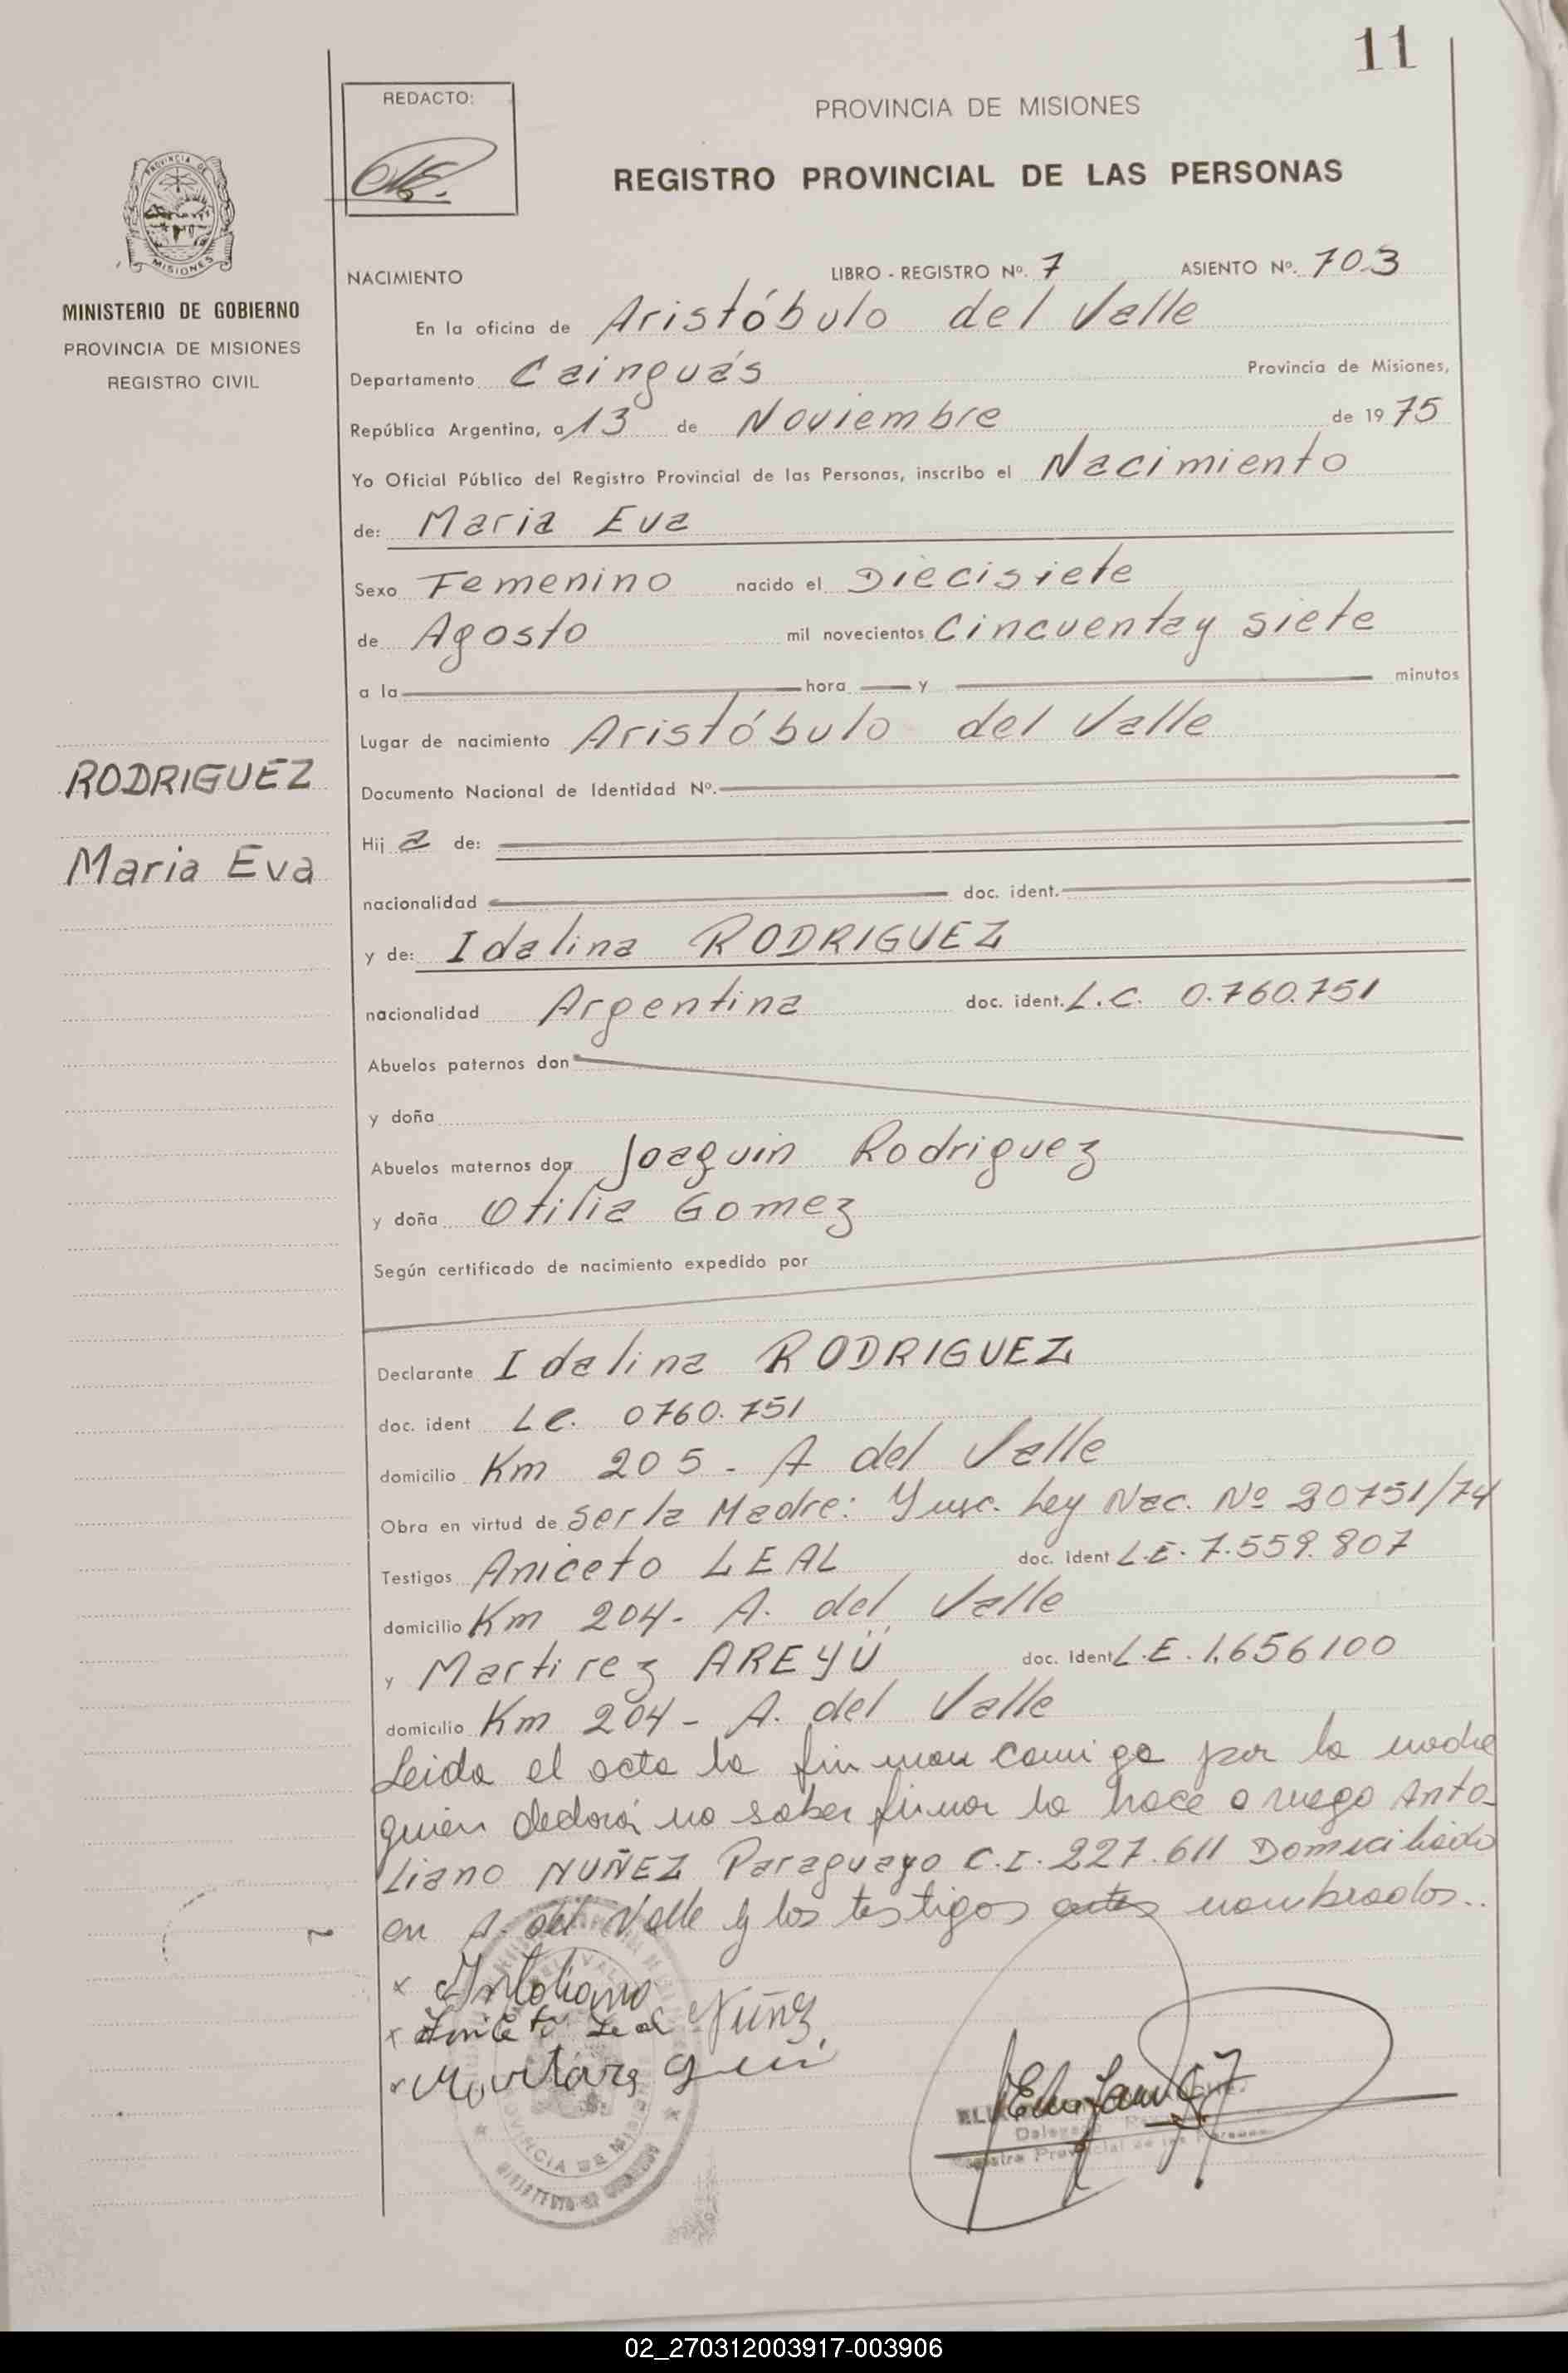 11
REDACTO:
PROVINCIA DE MISIONES
REGISTRO PROVINCIAL DE LAS PERSONAS
PROVINCIA DE
MISIONES
MINISTERIO DE GOBIERNO
PROVINCIA DE MISIONES
REGISTRO CIVIL
NACIMIENTO LIBRO - REGISTRO Nº. 7 ASIENTO Nº. 703
En la oficina de Aristóbulo del Valle
Departamento Cainguás Provincia de Misiones,
República Argentina, a 13 de Noviembre de 19 75
Yo Oficial Público del Registro Provincial de las Personas, inscribo el Nacimiento
de: Maria Eva
Sexo Femenino nacido el Diecisiete
de Agosto mil novecientos Cincuenta y siete
a la hora y minutos
Lugar de nacimiento Aristóbulo del Valle
RODRIGUEZ
Maria Eva
Documento Nacional de Identidad Nº.
Hij a de:
nacionalidad doc. ident.
y de: Idalina RODRIGUEZ
nacionalidad Argentina doc. ident. L.C. 0.760.751
Abuelos paternos don
y doña
Abuelos maternos don Joaquin Rodriguez
y doña Otilia Gomez
Según certificado de nacimiento expedido por
Declarante Idalina RODRIGUEZ
doc. ident LC. 0760.751
domicilio Km 205 - A del Valle
Obra en virtud de ser la Madre: Ynsc. Ley Nac. Nº 20751/74
Testigos Aniceto LEAL doc. ident L.E. 7.559.807
domicilio Km 204 - A. del Valle
y Martirez AREYÜ doc. Ident L.E. 1.656100
domicilio Km 204 - A. del Valle
Leida el acta la firman conmigo por la madre
quien declará no saber firmar lo hace a ruego Anto-
liano NUÑEZ Paraguayo C.I. 227.611 Domiciliado
en A. del Valle y los testigos antes nombrados..
x Antoliano Núñez
x Aniceto Leal
x
Delegado
Registro Provincial de las Personas
PROVINCIA DE MISIONES
MINISTERIO DE GOBIERNO
02_270312003917-003906